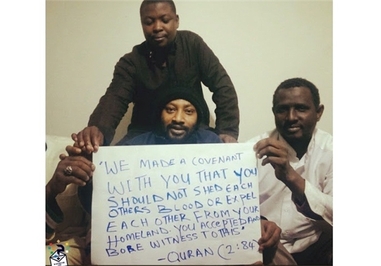 "WE MADE A COVENANT
WITH YOU THAT YOU
SHOULD NOT SHED EACH
OTHERS BLOOD OR EXPEL
EACH OTHER FROM YOUR
HOMELAND. YOU ACCEPTED AND
BORE WITNESS TO THIS"
-QURAN (2:84)